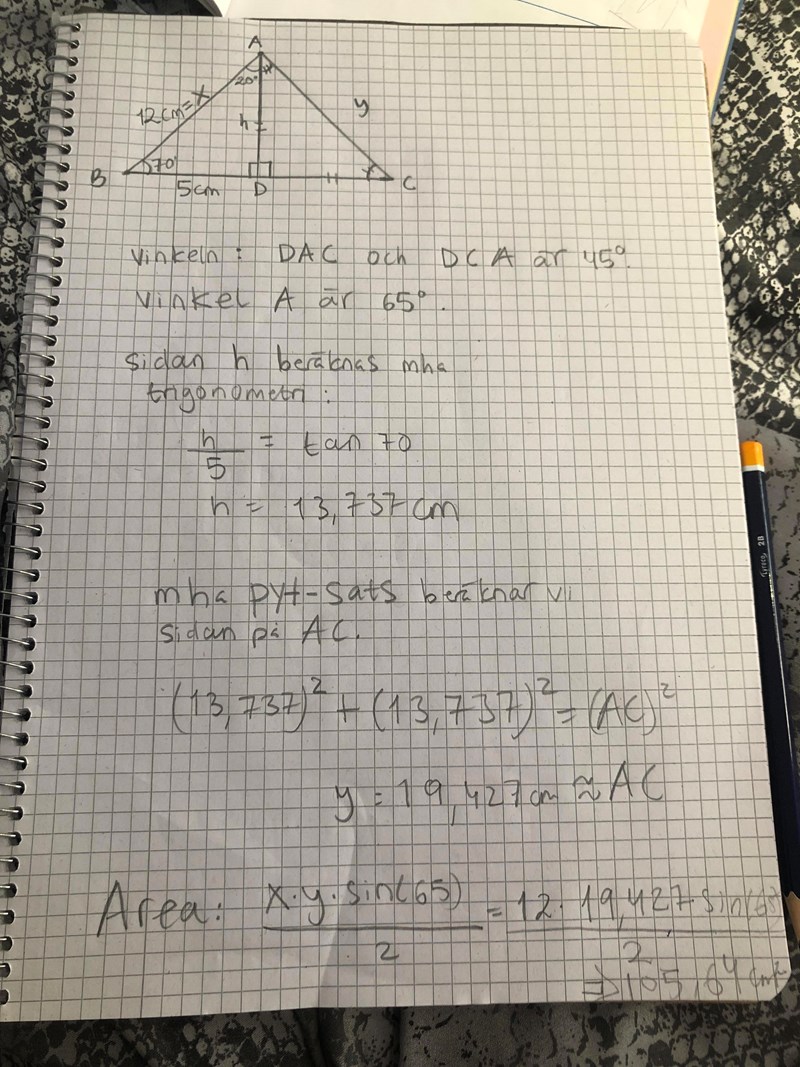 A
20°
12cm = x
y
h
70°
B
5cm
D
C
vinkeln: DAC och DCA är 45°.
Vinkel A är 65°.
sidan h beräknas mha
trigonometri:
h/5 = tan 70
h = 13,737 cm
mha pyt-sats beräknar vi
sidan på AC.
(13,737)² + (13,737)² = (AC)²
y = 19,427 cm ≈ AC
Area: x·y·sin(65)/2 = 12·19,427·sin(65)/2
⇒ 105,64 cm²